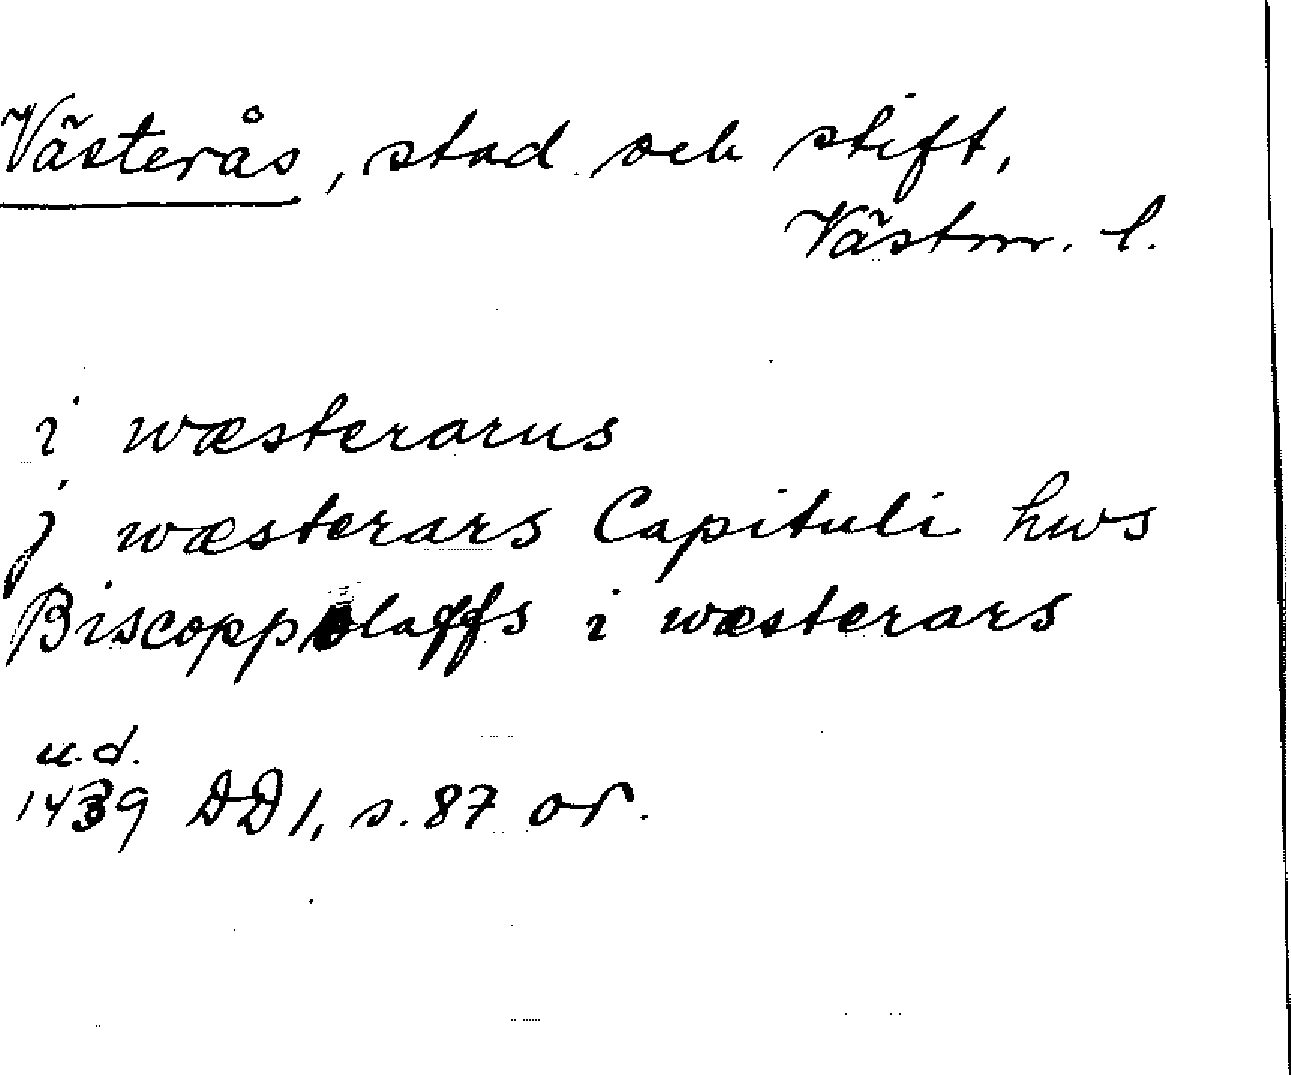 Västerås, stad och stift,
Västm. l.
i wæsterarus
j wæsterars Capituli hws
Biscopp olaffs i wæsterars
u.d.
1439 DD1, s. 87 or.